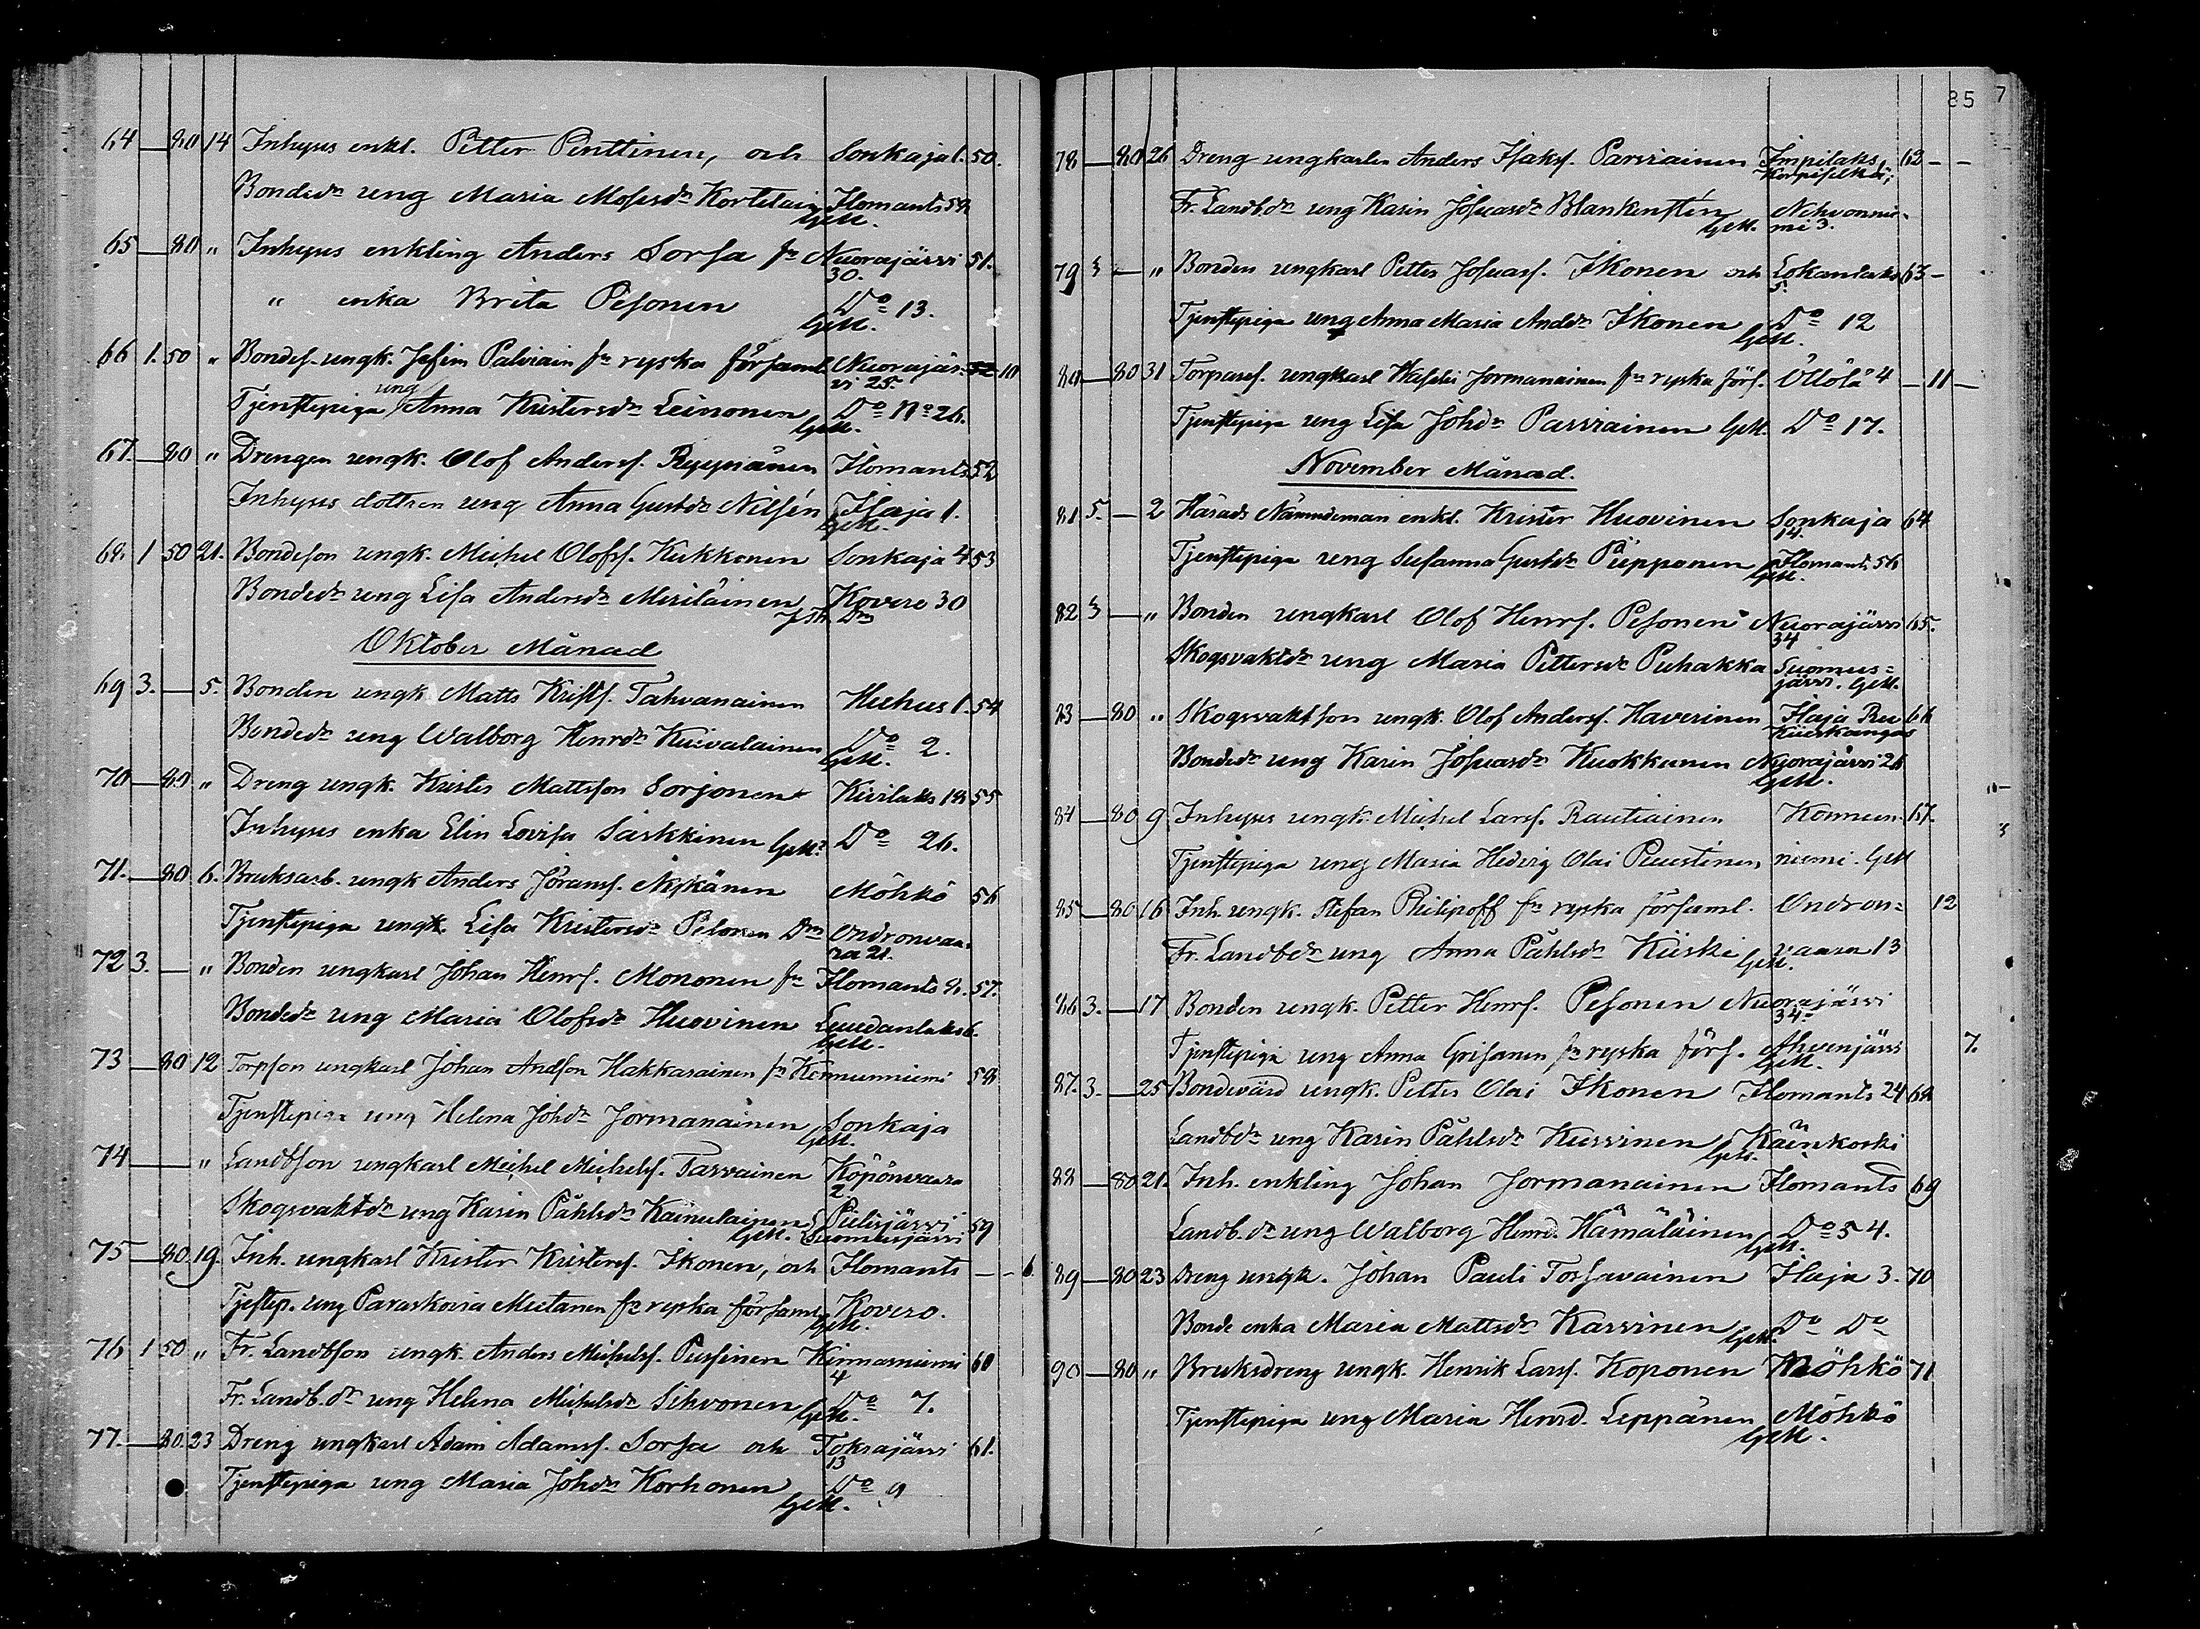 64 — 80 14 Inhyses enkl. Petter Penttinen, och Sonkaja 1. 50.
Bondedr ung Maria Mosesdr Kortelain Ilomants 58 GM.
65 — 80 „ Inhyses enkling Anders Sorsa fr Nuorajärvi 30. 51.
„ enka Brita Pesonen Do 13. GM.
66 1. 50 „ Bondes. ungk. Jefim Palviain fr ryska församl. Nuorajärvi 25 10
Tjenstepiga ung Anna Kristersdr Leinonen Do No 26. GM.
67. — 80 „ Drengen ungk. Olof Anders. Ryynänen Ilomants 52
Inhyses dottren ung Anna Gustdr Nilsén Ilaja 1. GM.
68. 1 50 21. Bondeson ungk. Michel Olofs. Kukkonen Sonkaja 4 53
Bondedr ung Lisa Andersdr Meriläinen Kovero 30
Oktober Månad
69 3. — 5. Bonden ungk Matts Krists. Tahvanainen Huhus 1. 54
Bondedr ung Walborg Henrdr Kuivalainen Do 2. GM.
70 — 80 „ Dreng ungk. Krister Mattsson Sorjonen Kivilaks 18 55
Inhyses enka Elin Lovisa Särkkinen GM. Do 26.
71. — 80 6. Bruksarb. ungk Anders Jörans. Nykänen Möhkö 56
Tjenstepiga ungk. Lisa Kristersdr Pelonen Ondronvaara 21.
72 3. — „ Bonden ungkarl Johan Henrs. Mononen fr Ilomants 8. 57.
Bondedr ung Maria Olofsdr Huovinen Luudanlaks 6. GM.
73 — 80 12 Torpson ungkarl Johan Andson Hakkarainen fr Konnunniemi 58
Tjenstepiga ung Helena Johdr Jormanainen Sonkaja GM.
74 — — „ Landbson ungkarl Michel Michels. Tarvainen Köpönvaara 2
Skogsvaktdr ung Karin Påhlsdr Kainulainen Pielisjärvi Suomusjärvi GM. 59
75 — 80. 19. Inh. ungkarl Krister Kristers. Ikonen, och Ilomants — — 6.
Tjestep. ung Paraskovia Mietanen fr ryska församl Kovero. GM.
76 1 50 „ Fr. Landbson ungk. Anders Michels. Pussinen Kirmasniemi 4 60
Fr. Landb. dr ung Helena Michelsdr Sihvonen GM. Do 7.
77. — 80. 23 Dreng ungkarl Adam Adams. Sorsa och Tokrajärvi 13 61.
Tjenstepiga ung Maria Johdr Korhonen GM. Do 9
85 7
78 — 80 26 Dreng ungkarlen Anders Isaks. Parviainen Impilaks, Korpiselkä; 62 — —
Fr. Landb.dr ung Karin Josuasdr Blankenstén GM. Nehvonniemi 3.
79 3 — „ Bonden ungkarl Petter Josuas. Ikonen och Lokanlaks 5. 63 —
Tjenstepiga ung Anna Maria Anddr Ikonen GM. Do 12
80 — 80 31 Torpares. ungkarl Wasilei Jormanainen fr ryska förs. Öllölä 4 — 11 —
Tjenstepiga ung Lisa Johdr Parviainen GM. Do 17.
November Månad.
81 5. — 2 Härads Nämndeman enkl. Krister Huovinen Sonkaja 14. 64
Tjenstepiga ung Susanna Gustdr Piipponen Ilomants 56 GM.
82 3 — „ Bonden ungkarl Olof Henrs. Pesonen Nuorajärvi 34 65.
Skogsvaktdr ung Maria Pettersdr Puhakka Suomusjärvi. GM.
83 — 80 „ Skogsvaktson ungk. Olof Anders. Haverinen Ilaja 66
Bondedr ung Karin Josuasdr Kuokkanen Nuorajärvi 26 GM.
84 — 80 9 Inhyses ungk. Michel Lars. Rautiainen Konnun- 67.
Tjenstepiga ung Maria Hedvig Olai Puustinen niemi. GM
85 — 80 16 Inh. ungk. Stefan Philipoff fr ryska församl. Ondron= 12
Fr. Landbdr ung Anna Påhlsdr Kiiski GM. vaara 13
86 3. — 17 Bonden ungk. Petter Henrs. Pesonen Nuorajärvi 34.
Tjenstepiga ung Anna Grisanen fr ryska förs. Ahvenjärvi GM. 7.
87. 3. — 25 Bondevärd ungk. Petter Olai Ikonen Ilomants 24 68
Landbdr ung Karin Påhlsdr Kurvinen GM. Käenkoski
88 — 80 21. Inh. enkling Johan Jormanainen Ilomants 69
Landb. dr ung Walborg Henrd. Hämäläinen GM. Do 54.
89 — 80 23 Dreng ungk. Johan Pauli Torsavainen Ilaja 3. 70
Bonde enka Maria Mattsdr Karvinen GM. Do Do
90 — 80 „ Bruksdreng ungk. Henrik Lars. Koponen Möhkö 71
Tjenstepiga ung Maria Henrd. Leppänen Möhkö GM.